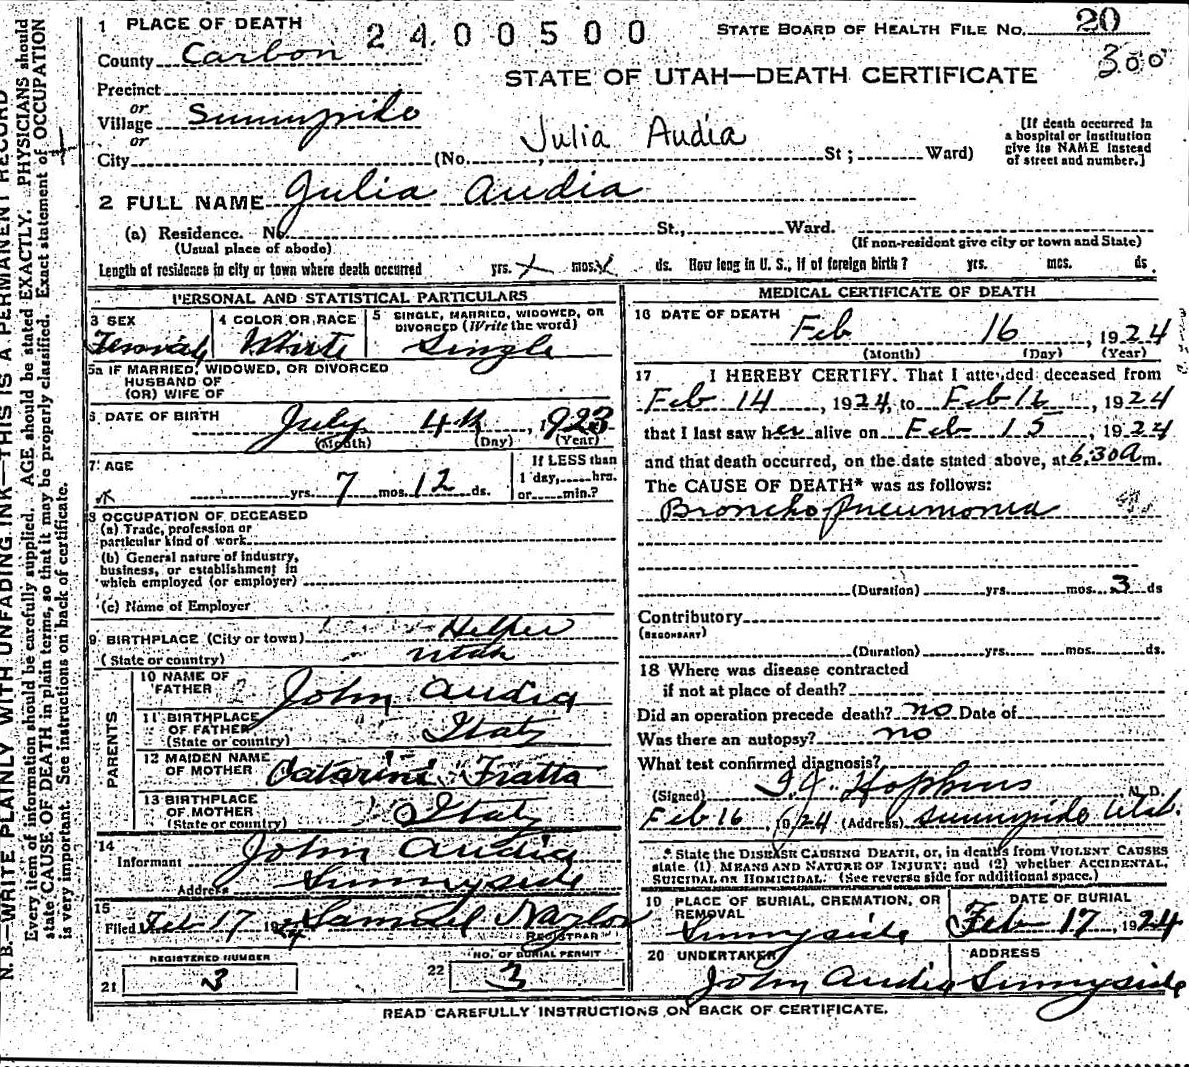 1 PLACE OF DEATH
2400500
STATE BOARD OF HEALTH FILE NO. 20
300
County Carbon
STATE OF UTAH—DEATH CERTIFICATE
Precinct
or
Village Sunnyside
or
City (No. , St; Ward)
Julia Audia
[If death occurred in a hospital or institution give its NAME instead of street and number.]
2 FULL NAME Julia Audia
(a) Residence. No. St., Ward.
(Usual place of abode) (If non-resident give city or town and State)
Length of residence in city or town where death occurred yrs. mos. ds. How long in U. S., if of foreign birth? yrs. mos. ds.
PERSONAL AND STATISTICAL PARTICULARS
3 SEX Female
4 COLOR OR RACE White
5 SINGLE, MARRIED, WIDOWED, OR DIVORCED (Write the word) Single
5a IF MARRIED, WIDOWED, OR DIVORCED
HUSBAND OF
(OR) WIFE OF
6 DATE OF BIRTH July 4th, 1923
(Month) (Day) (Year)
7 AGE yrs. 7 mos. 12 ds.
If LESS than
1 day, hrs.
or min.?
8 OCCUPATION OF DECEASED
(a) Trade, profession or
particular kind of work
(b) General nature of industry,
business, or establishment in
which employed (or employer)
(c) Name of Employer
9 BIRTHPLACE (City or town) Helper
(State or country) Utah
PARENTS
10 NAME OF FATHER John Audia
11 BIRTHPLACE OF FATHER (State or country) Italy
12 MAIDEN NAME OF MOTHER Catarina Fratta
13 BIRTHPLACE OF MOTHER (State or country) Italy
14 Informant John Audia
Address Sunnyside
15 Filed Feb 17 1924 Samuel Naylor
REGISTRAR
REGISTERED NUMBER
21 3
NO. OF BURIAL PERMIT
22 3
MEDICAL CERTIFICATE OF DEATH
16 DATE OF DEATH Feb 16, 1924
(Month) (Day) (Year)
17 I HEREBY CERTIFY. That I attended deceased from
Feb 14, 1924, to Feb 16, 1924
that I last saw her alive on Feb 15, 1924
and that death occurred, on the date stated above, at 6:30 a m.
The CAUSE OF DEATH* was as follows:
Broncho pneumonia
(Duration) yrs. mos. 3 ds
Contributory
(SECONDARY)
(Duration) yrs. mos. ds.
18 Where was disease contracted
if not at place of death?
Did an operation precede death? no Date of
Was there an autopsy? no
What test confirmed diagnosis?
(Signed) Hopkins M. D.
Feb 16, 1924 (Address) Sunnyside Utah.
* State the DISEASE CAUSING DEATH, or, in deaths from VIOLENT CAUSES
state (1) MEANS AND NATURE OF INJURY; and (2) whether ACCIDENTAL,
SUICIDAL OR HOMICIDAL. (See reverse side for additional space.)
19 PLACE OF BURIAL, CREMATION, OR REMOVAL Sunnyside
DATE OF BURIAL Feb 17, 1924
20 UNDERTAKER John Audia
ADDRESS Sunnyside
READ CAREFULLY INSTRUCTIONS ON BACK OF CERTIFICATE.
N. B.—WRITE PLAINLY WITH UNFADING INK—THIS IS A PERMANENT RECORD
Every item of information should be carefully supplied. AGE should be stated EXACTLY. PHYSICIANS should
state CAUSE OF DEATH in plain terms, so that it may be properly classified. Exact statement of OCCUPATION
is very important. See instructions on back of certificate.